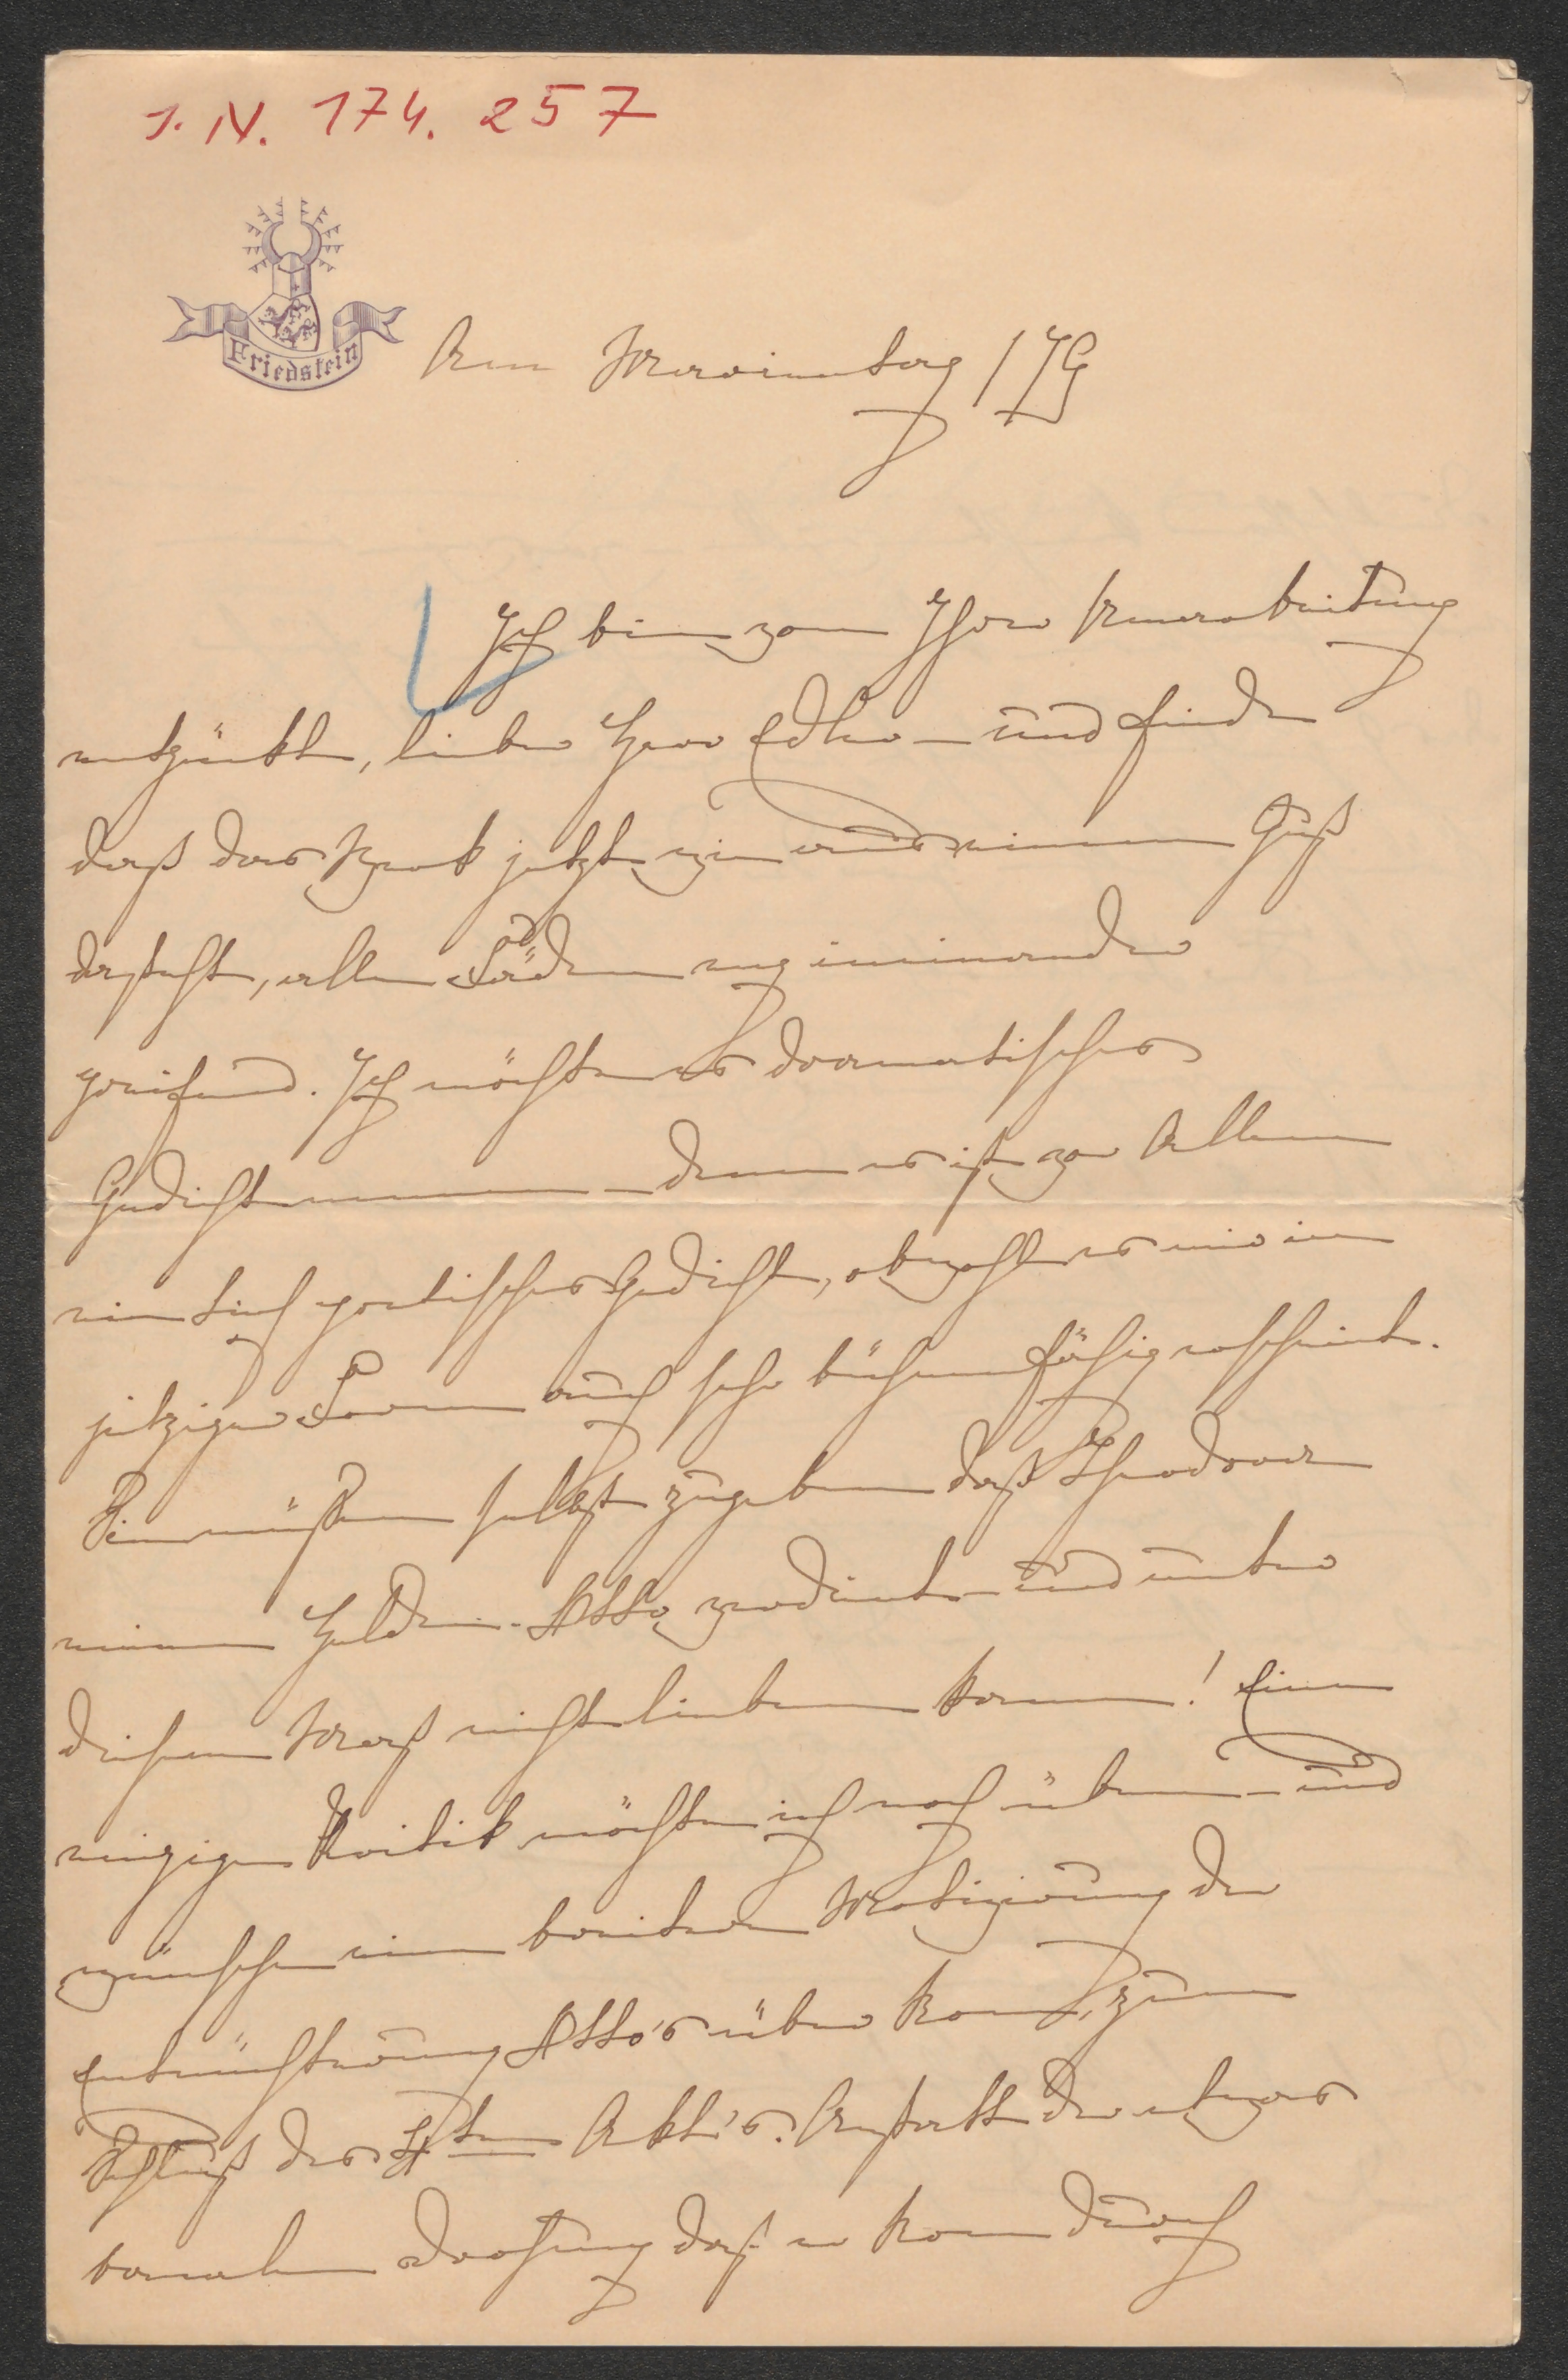 I. N. 174. 257
Friedstein
Am
Ich bin von Ihrer Umarbeitung
entzückt, lieber Herr Edler – und finde
daß das Werk jetzt wie aus einem Guß
dasteht, alle Fäden eng ineinander
greifend. Ich möchte es dramatisches
Gedicht nennen – denn es ist vor Allem
ein tief poetisches Gedicht, obwohl es mir in
jetziger Form auch sehr bühnenfähig erscheint.
Sie müßen selbst zugeben daß Theodora
einen Helden-Otto verdient – und unter
diesem Maß nicht lieben kann! Eine
einzige Kritik möchte ich noch üben – und
wünsche eine breitere Motivirung der
Entrüstung Otto's über Rom, zum
Schluß des 4ten Akt's. Anstatt der etwas
banalen Drohung daß er Rom durch